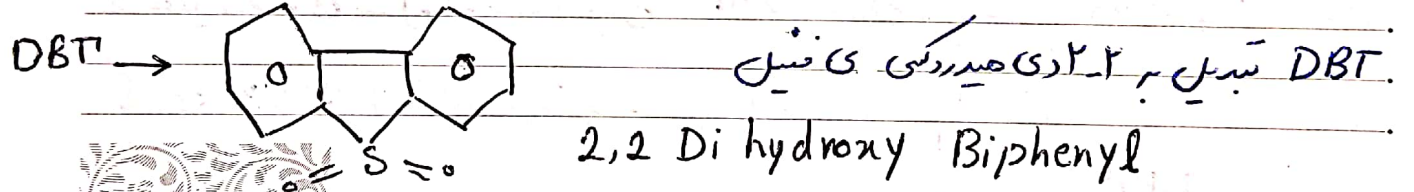 DBT → O O DBT تبدیل به ۲-۲ دی هیدروکسی ی فنیل.
2,2 Di hydroxy Biphenyl
o = S = o